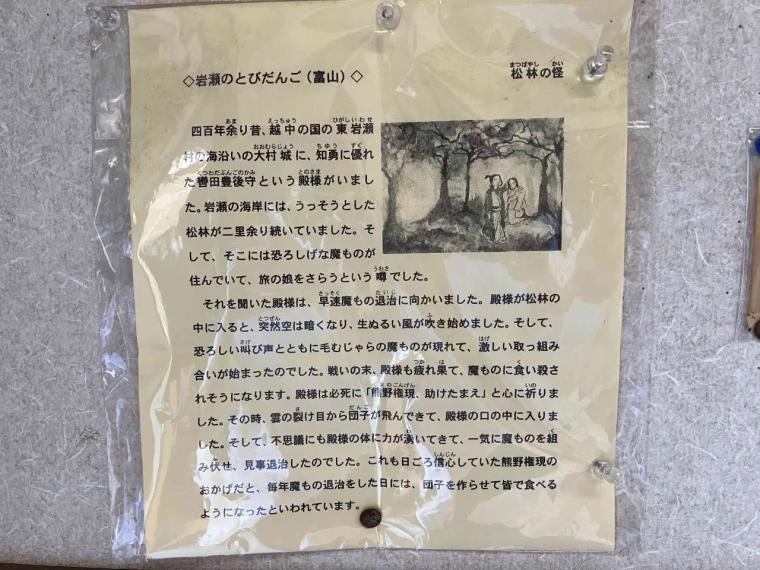 ◇岩瀬のとびだんご(富山)◇
松林の怪
まつばやし かい
四百年余り昔、越中の国の東岩瀬
村の海沿いの大村城に、知勇に優れ
た轡田豊後守という殿様がいまし
た。岩瀬の海岸には、うっそうとした
松林が二里余り続いていました。そ
して、そこには恐ろしげな魔ものが
住んでいて、旅の娘をさらうという噂でした。
それを聞いた殿様は、早速魔もの退治に向かいました。殿様が松林の
中に入ると、突然空は暗くなり、生ぬるい風が吹き始めました。そして、
恐ろしい叫び声とともに毛むじゃらの魔ものが現れて、激しい取っ組み
合いが始まったのでした。戦いの末、殿様も疲れ果て、魔ものに食い殺さ
れそうになります。殿様は必死に「熊野権現、助けたまえ」と心に祈りま
した。その時、雲の裂け目から団子が飛んできて、殿様の口の中に入りま
した。そして、不思議にも殿様の体に力が湧いてきて、一気に魔ものを組
み伏せ、見事退治したのでした。これも日ごろ信心していた熊野権現の
おかげだと、毎年魔もの退治をした日には、団子を作らせて皆で食べる
ようになったといわれています。